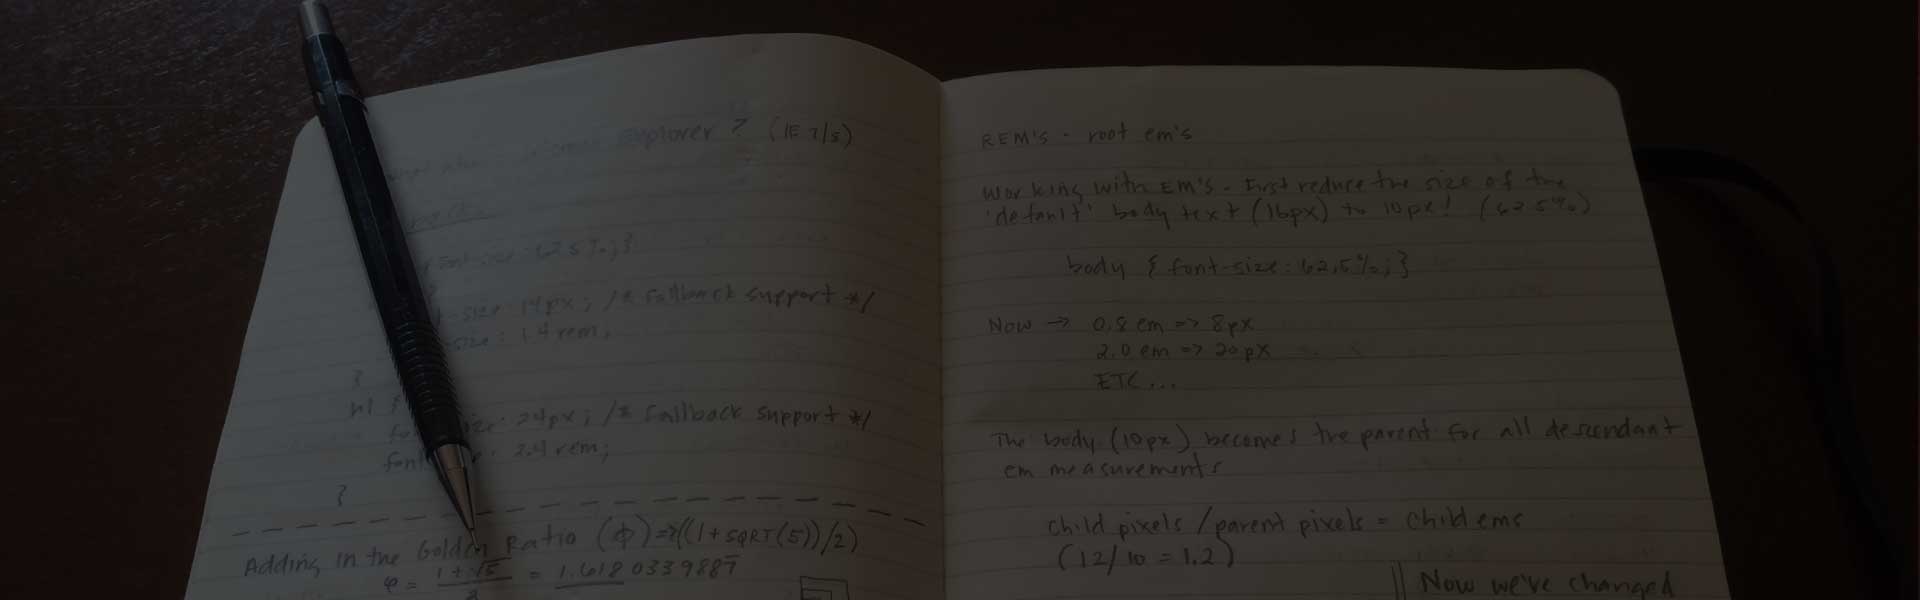 Explorer ? (IE 7/8)
font-size: 62.5%;}
-size: 14px; /* fallback support */
-size: 1.4 rem;
}
h1 {
size: 24px; /* fallback support */
font : 2.4 rem;
}
Adding in the Golden Ratio (φ) => ((1+SQRT(5))/2)
φ = 1+√5 = 1.6180339887
2
REM's - root em's
Working with EM's - First reduce the size of the
'default' body text (16px) to 10px! (62.5%)
body { font-size: 62.5%; }
Now → 0.8 em => 8px
2.0 em => 20px
ETC...
The body (10px) becomes the parent for all descendant
em measurements
child pixels / parent pixels = child ems
(12/10 = 1.2)
Now we've changed